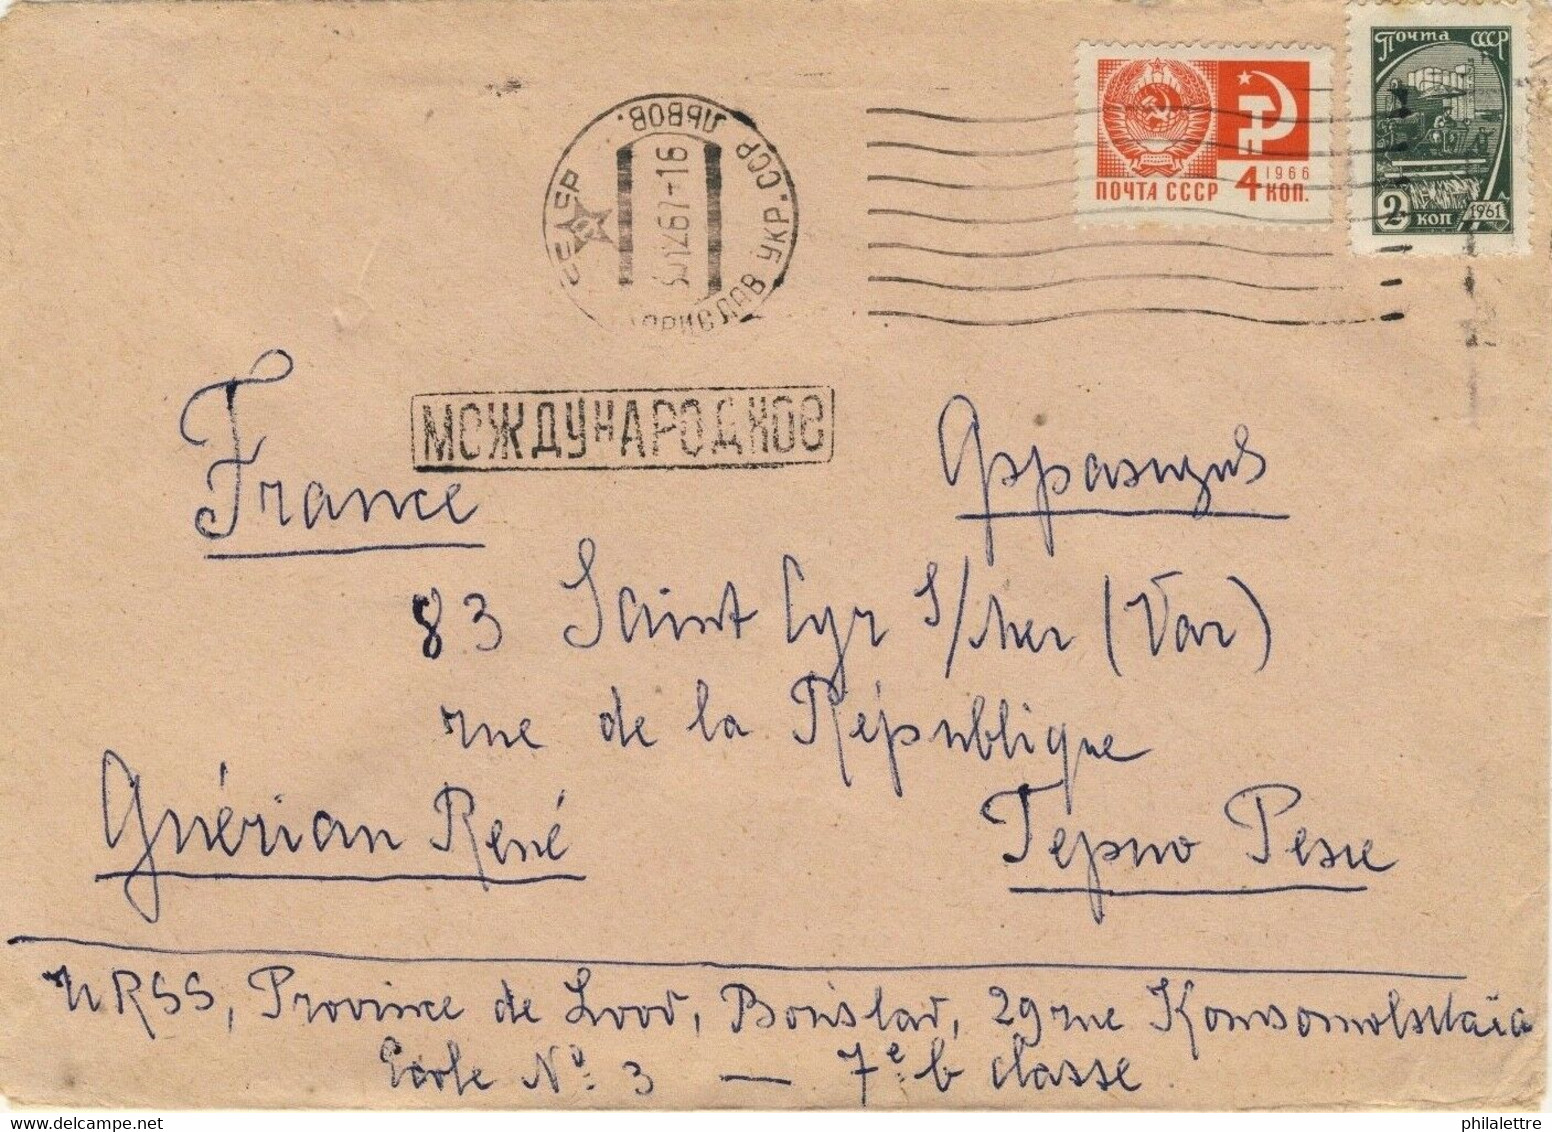 Почта СССР
2 КОП 1961
1966
ПОЧТА СССР 4 КОП.
СССР
БОРИСЛАВ УКР. ССР ЛЬВОВ.
1267-16
МЕЖДУНАРОДНОЕ
France
Франция
83 Saint Cyr s/Mer (Var)
rue de la République
Guérian René
Герио Рене
URSS, Province de Lvov, Borislav, 29 rue Komsomolskaïa
Ecole Nº 3 — 7e b classe
philalettre